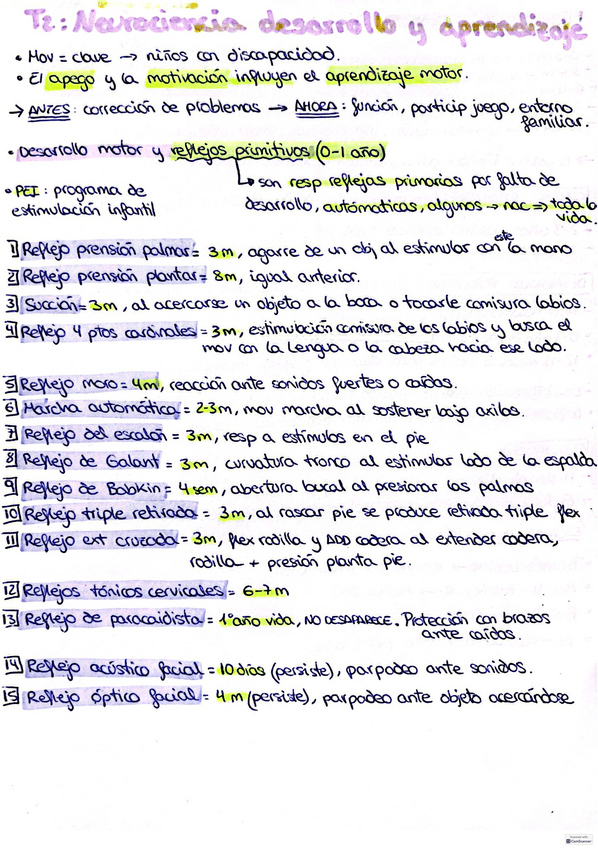 T2: Neurociencia desarrollo y aprendizaje
• Mov = clave → niños con discapacidad.
• El apego y la motivación influyen el aprendizaje motor.
→ ANTES: corrección de problemas → AHORA: función, particip juego, entorno
familiar.
• Desarrollo motor y reflejos primitivos (0-1 año)
↳ son resp reflejas primarias por falta de
desarrollo, automáticas, algunos → nac ⇒ toda la
vida.
• PEI: programa de
estimulación infantil
1 Reflejo prensión palmar = 3m, agarre de un obj al estimular con este la mano
2 Reflejo prensión plantar = 8m, igual anterior.
3 Succión = 3m, al acercarse un objeto a la boca o tocarle comisura labios.
4 Reflejo 4 ptos cardinales = 3m, estimulación comisura de los labios y busca el
mov con la lengua o la cabeza hacia ese lado.
5 Reflejo moro = 4m, reacción ante sonidos fuertes o caídas.
6 Marcha automática = 2-3m, mov marcha al sostener bajo axilas.
7 Reflejo del escalón = 3m, resp a estímulos en el pie
8 Reflejo de Galant = 3m, curvatura tronco al estimular lado de la espalda
9 Reflejo de Babkin = 4 sem, abertura bucal al presionar las palmas
10 Reflejo triple retirada = 3m, al rascar pie se produce retirada triple flex
11 Reflejo ext cruzada = 3m, flex rodilla y ADD cadera al extender cadera,
rodilla + presión planta pie.
12 Reflejos tónicos cervicales = 6-7 m
13 Reflejo de paracaidista = 1º año vida, NO DESAPARECE. Protección con brazos
ante caídas.
14 Reflejo acústico facial = 10 días (persiste), parpadeo ante sonidos.
15 Reflejo óptico facial = 4 m (persiste), parpadeo ante objeto acercándose
CamScanner